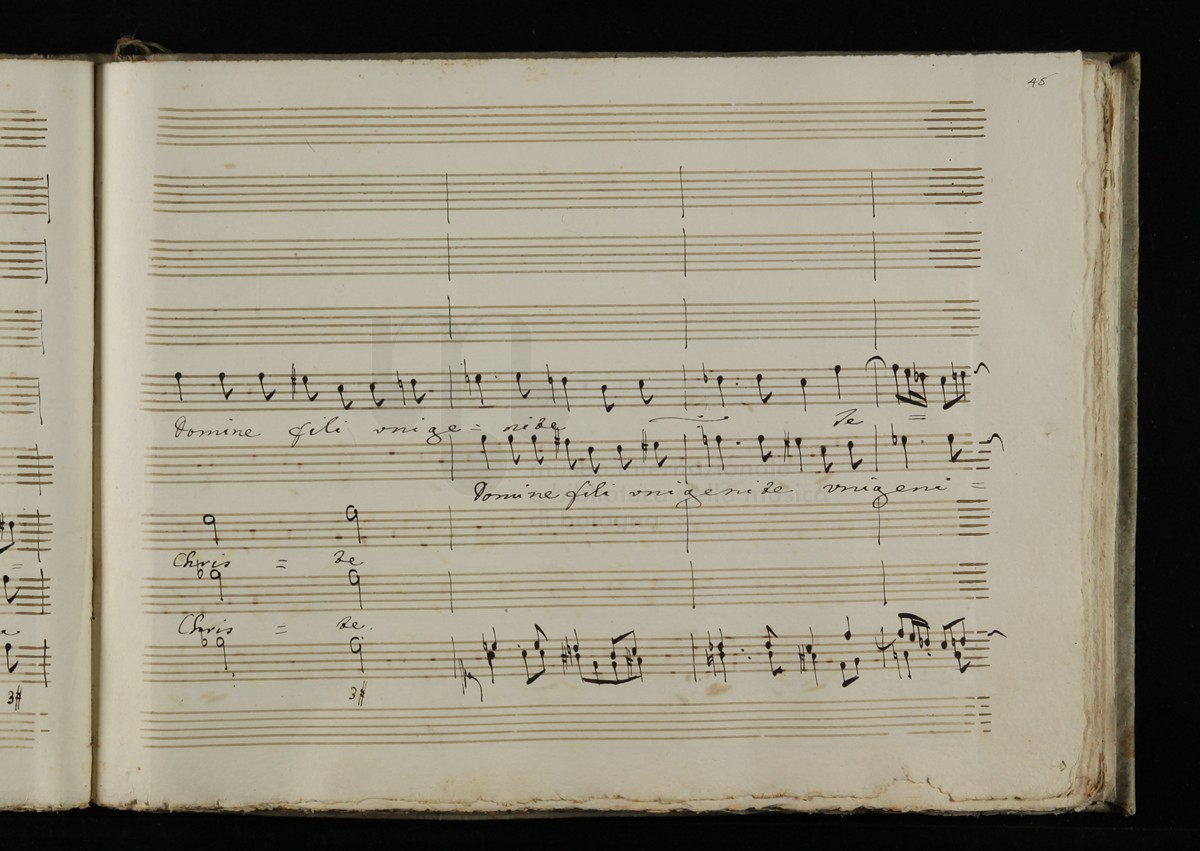 45
Domine fili unige = nite te =
Domine fili unigenite unigeni =
Chris = te
Chris = te.
3#
3#